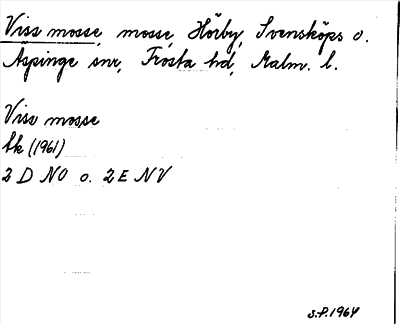 Viss mosse, mosse, Hörby, Svensköps o.
Äspinge snr, Frosta hd, Malm. l.
Viss mosse
Ek (1961)
2 D NO o. 2 E NV
S.P. 1964